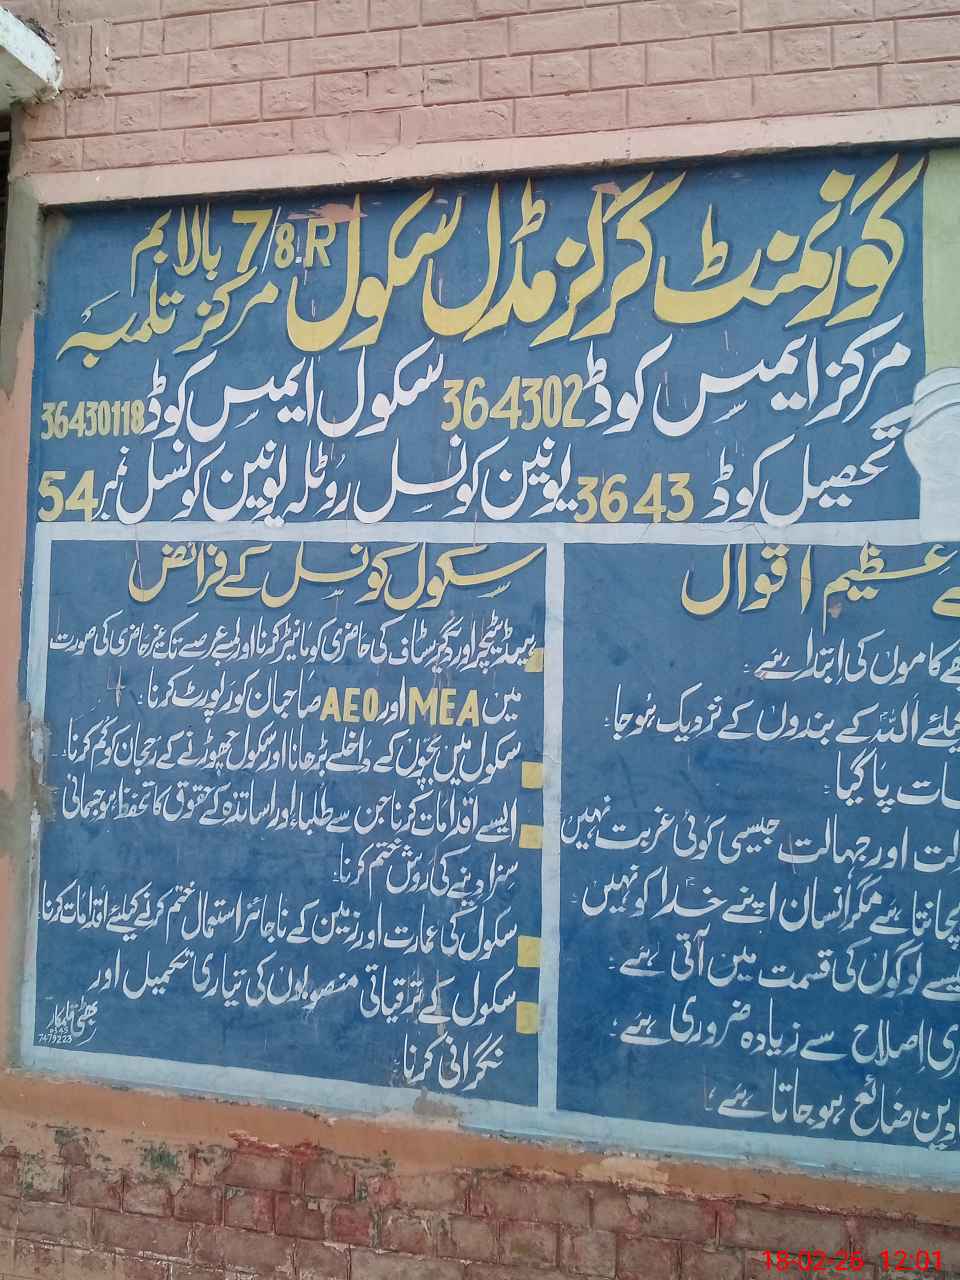 گورنمنٹ گرلز مڈل سکول 7/8.R بالا بم
مرکز تلمبہ
مرکز ایمس کوڈ 364302 سکول ایمس کوڈ 36430118
تحصیل کوڈ 3643 یونین کونسل روٹلہ یونین کونسل نمبر 54
سکول کونسل کے فرائض
ہیڈ ٹیچر اور دیگر سٹاف کی حاضری کو مانیٹر کرنا اور لمبے عرصے تک غیر حاضری کی صورت
میں MEA اور AEO صاحبان کو رپورٹ کرنا۔
سکول میں بچوں کے داخلے بڑھانا اور سکول چھوڑنے کے رجحان کو کم کرنا۔
ایسے اقدامات کرنا جن سے طلباء اور اساتذہ کے حقوق کا تحفظ ہو جسمانی
سزا دینے کی روش ختم کرنا۔
سکول کی عمارت اور زمین کے ناجائز استعمال ختم کرنے کیلئے اقدامات کرنا۔
سکول کے ترقیاتی منصوبوں کی تیاری تکمیل اور
نگرانی کرنا۔
بھٹی قلمکار
0345
7479223
عظیم اقوال
کاموں کی ابتدا ہے۔
کیلئے اللہ کے بندوں کے نزدیک ہو جا
پا گیا۔
اور جہالت جیسی کوئی غربت نہیں
ہے مگر انسان اپنے خدا کو نہیں۔
لوگوں کی قسمت میں آتی ہے۔
اصلاح سے زیادہ ضروری ہے۔
ضائع ہو جاتا ہے۔
18-02-26 12:01